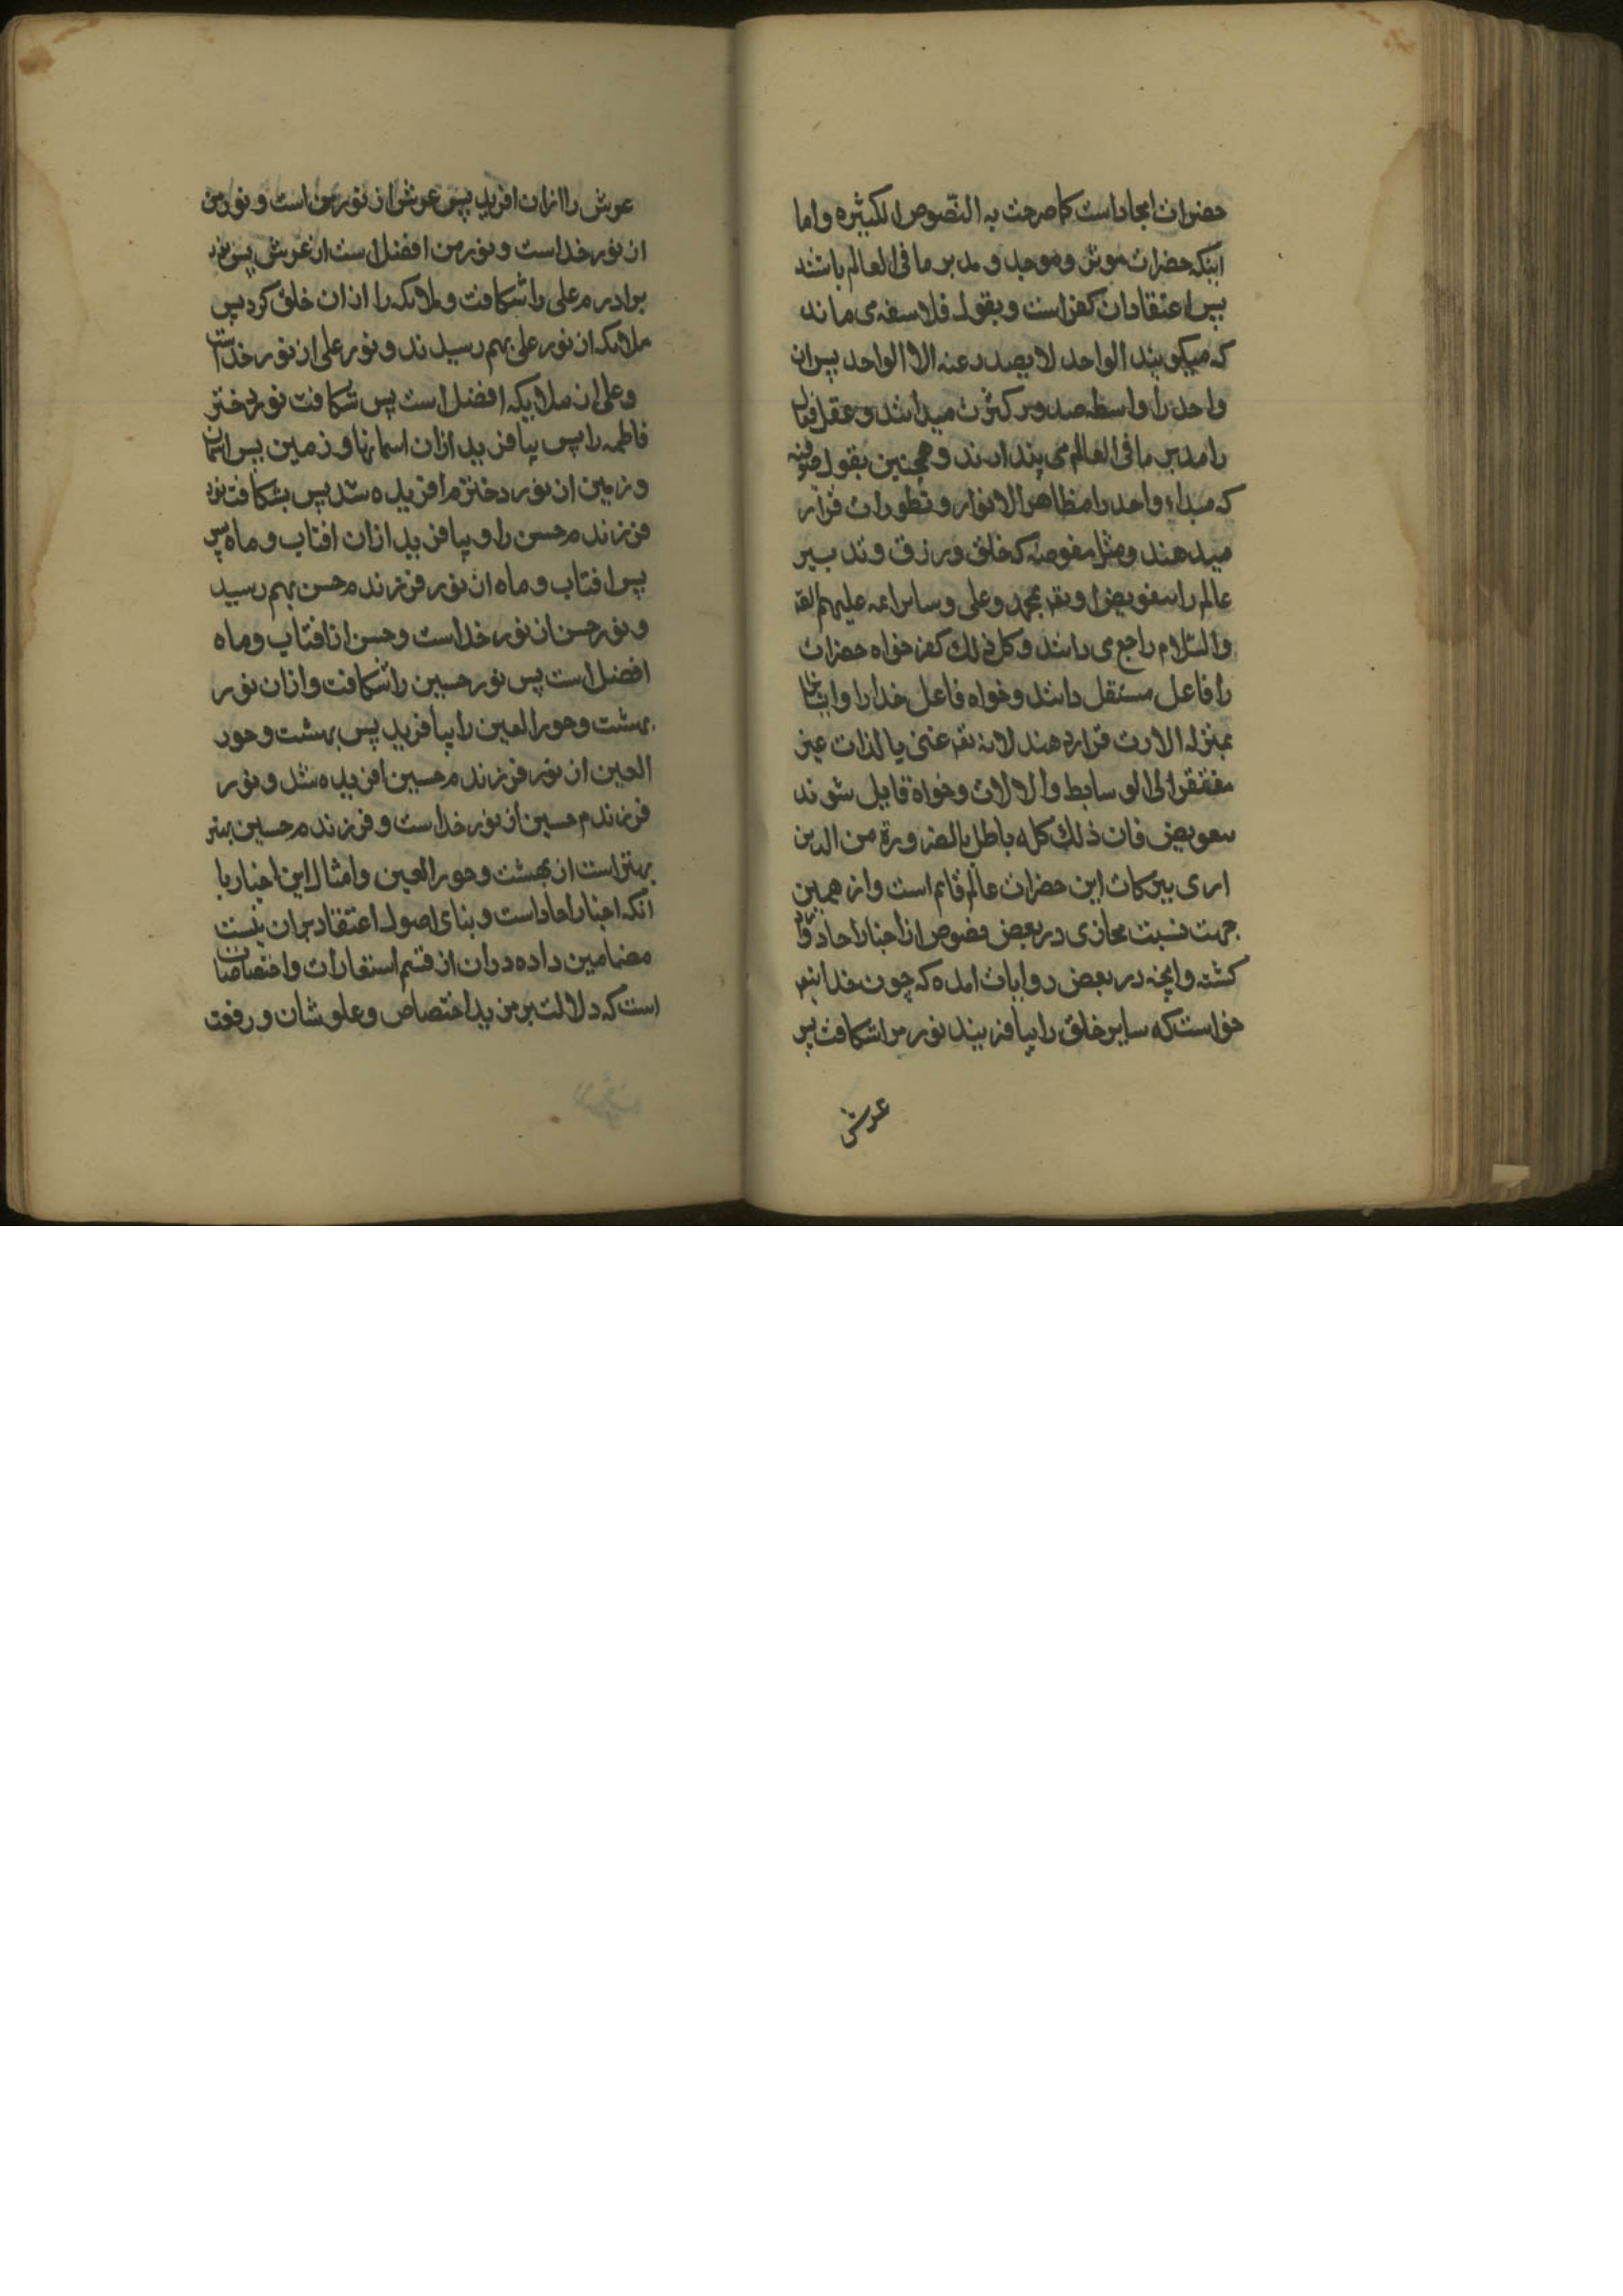 حضرات ایجاد است کما صرحت به النصوص الکثیره و اما
اینکه حضرات موثر و موجد و مدبر ما فی العالم باشند
پس اعتقادان کفر است و بقول فلاسفه می ماند
که میکویند الواحد لا یصدر عنه الا الواحد پس ان
واحد را واسطه صدور کثرت میدانند و عقل فعال
را مدبر ما فی العالم می پندارند و همچنین بقول صوفیه
که مبداء واحد را مظاهر الانوار و تطورات قرار
میدهند و مثل مفوضه که خلق و رزق و تدبیر
عالم را بتفویض او تقم بمحمد و علی و سایر ائمه علیهم الصلوة
والسلام راجع می دانند و کل ذلک کفر خواه حضرات
را فاعل مستقل دانند و خواه فاعل خدا را و ایشان
بمنزله الات قرار دهند لانه تقم غنی بالذات غیر
مفتقر الی الوسایط والالات و خواه قایل شوند
بتعویض فان ذلک کله باطل بالضرورة من الدین
اری ببرکات این حضرات عالم قایم است و از همین
جهت نسبت مجازی در بعض فصوص از اخبار احاد واقع
کشته و انچه در بعض روایات امده که چون خدایتعم
خواست که سایر خلق را بیافریند نور مرا شکافت پس
عرش
عرش را ازان افرید پس عرش از نور من است و نور من
از نور خداست و نور من افضل است از عرش پس نور
برادرم علی را شکافت و ملائکه را ازان خلق کرد پس
ملائکه از نور علی بهم رسیدند و نور علی از نور خداست
و علی از ملایکه افضل است پس شکافت نور دختر
فاطمه را پس بیافرید ازان اسمانها و زمین پس اسمان
و زمین از نور دخترم افریده شد پس بشکافت نور
فرزندم حسن را و بیافرید ازان افتاب و ماه پس
پس افتاب و ماه از نور فرزندم حسن بهم رسید
و نور حسن از نور خداست و حسن از افتاب و ماه
افضل است پس نور حسین را شکافت و ازان نور
بهشت و حور العین را بیافرید پس بهشت و حور
العین از نور فرزندم حسین افریده شد و نور
فرزندم حسین از نور خداست و فرزندم حسین بهتر
بهتر است از بهشت و حور العین و امثال این اخبار با
انکه اخبار احاد است و بنای اصول اعتقاد بران نیست
مضامین داده دران از قسم استعارات و اختصاصات
است که دلالت بر مزید اختصاص و علو شان و رفعت